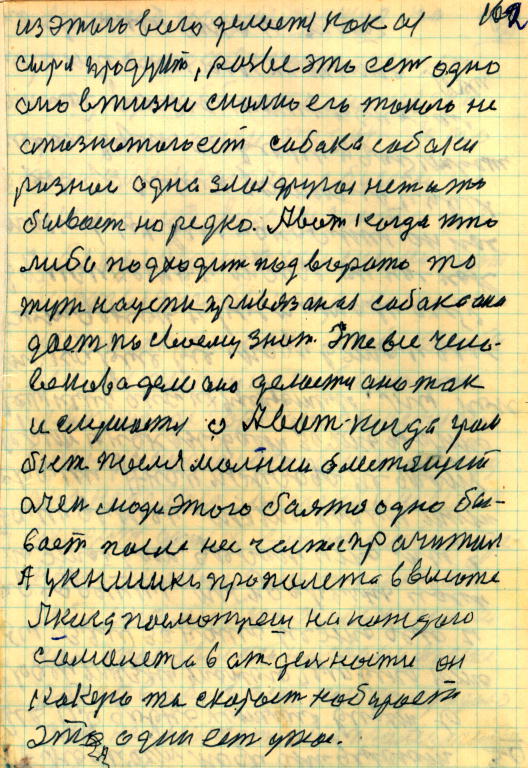 162
из этого всего делает как и
сыри продукт, разве это ест одно
оно в жизни сколко его такого не
сабака сабаки
разное одна злая другая нет а это
бывает но редко. А вот когда кто
либо подходит под ворота то
тут на успи привязаная сабака она
дает по своему знат. Эта все чело-
века дело оно делается оно так
и слушается А вот когда гром
бьет после молнии блестящей
очен люди этого баятся одно бы-
вает после нее прачитал
А у книшки про полета в высоте
Я когда посмотреш на каждого
самолета в отделности он
какеро та скорост набирает
это один ест ужа.